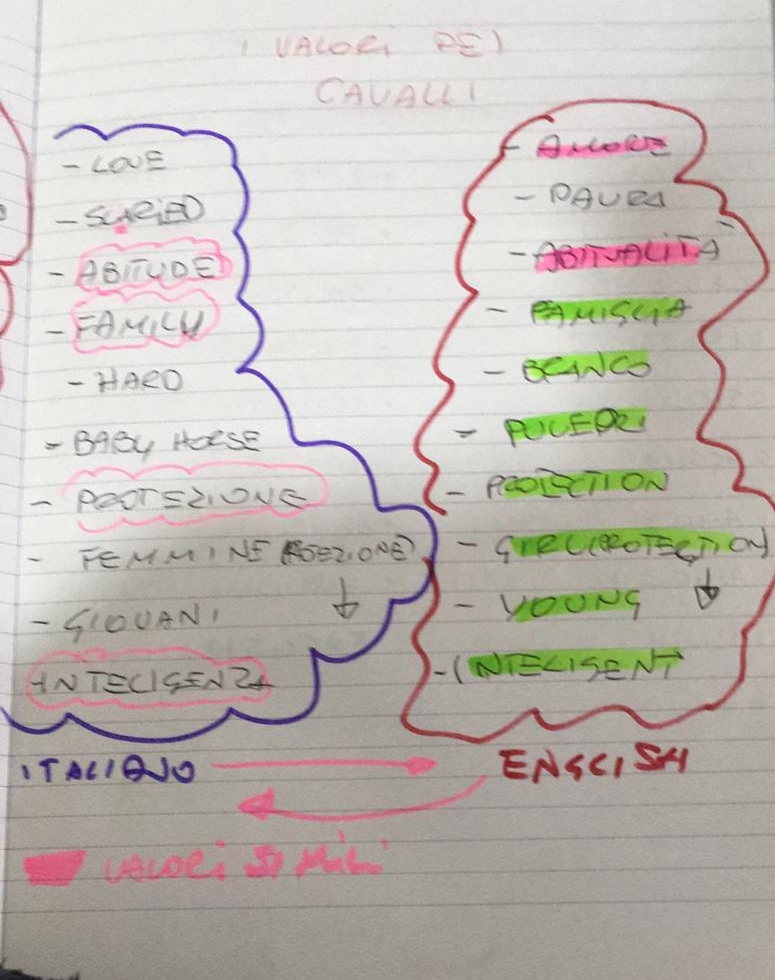 I VALORI DEI
CAVALLI
- LOVE
- SCARIED
- ABITUDE
- FAMILY
- HARD
- BABY HORSE
- PROTEZIONE
- FEMMINE (PROEZIONE)
- GIOVANI
- INTELIGENZA
ITALIANO
- AMORE
- PAURA
- ABITUALITÀ
- FAMIGLIA
- BRANCO
- PULEDRI
- PROTECTION
- GIRL (PROTECTION)
- YOUNG
- INTELIGENT
ENGLISH
VALORI SIMILI